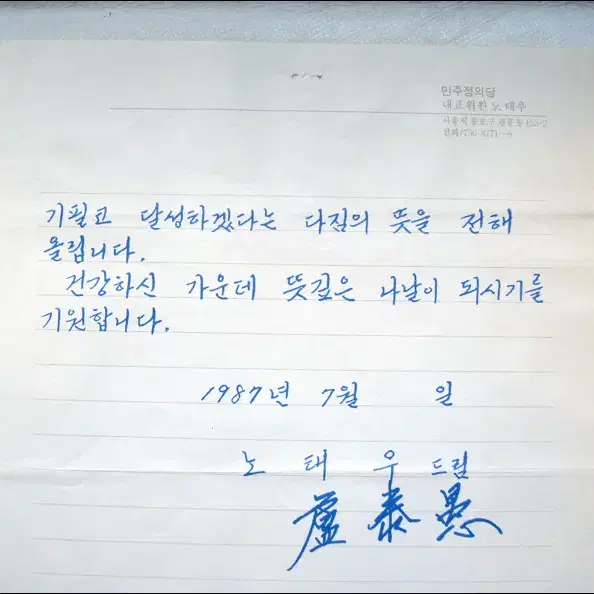 민주정의당
대표위원 노태우
서울시 종로구 관훈동 155-2
기필코 달성하겠다는 다짐의 뜻을 전해
올립니다.
건강하신 가운데 뜻깊은 나날이 되시기를
기원합니다.
1987년 7월 일
노 태 우 드림
盧泰愚